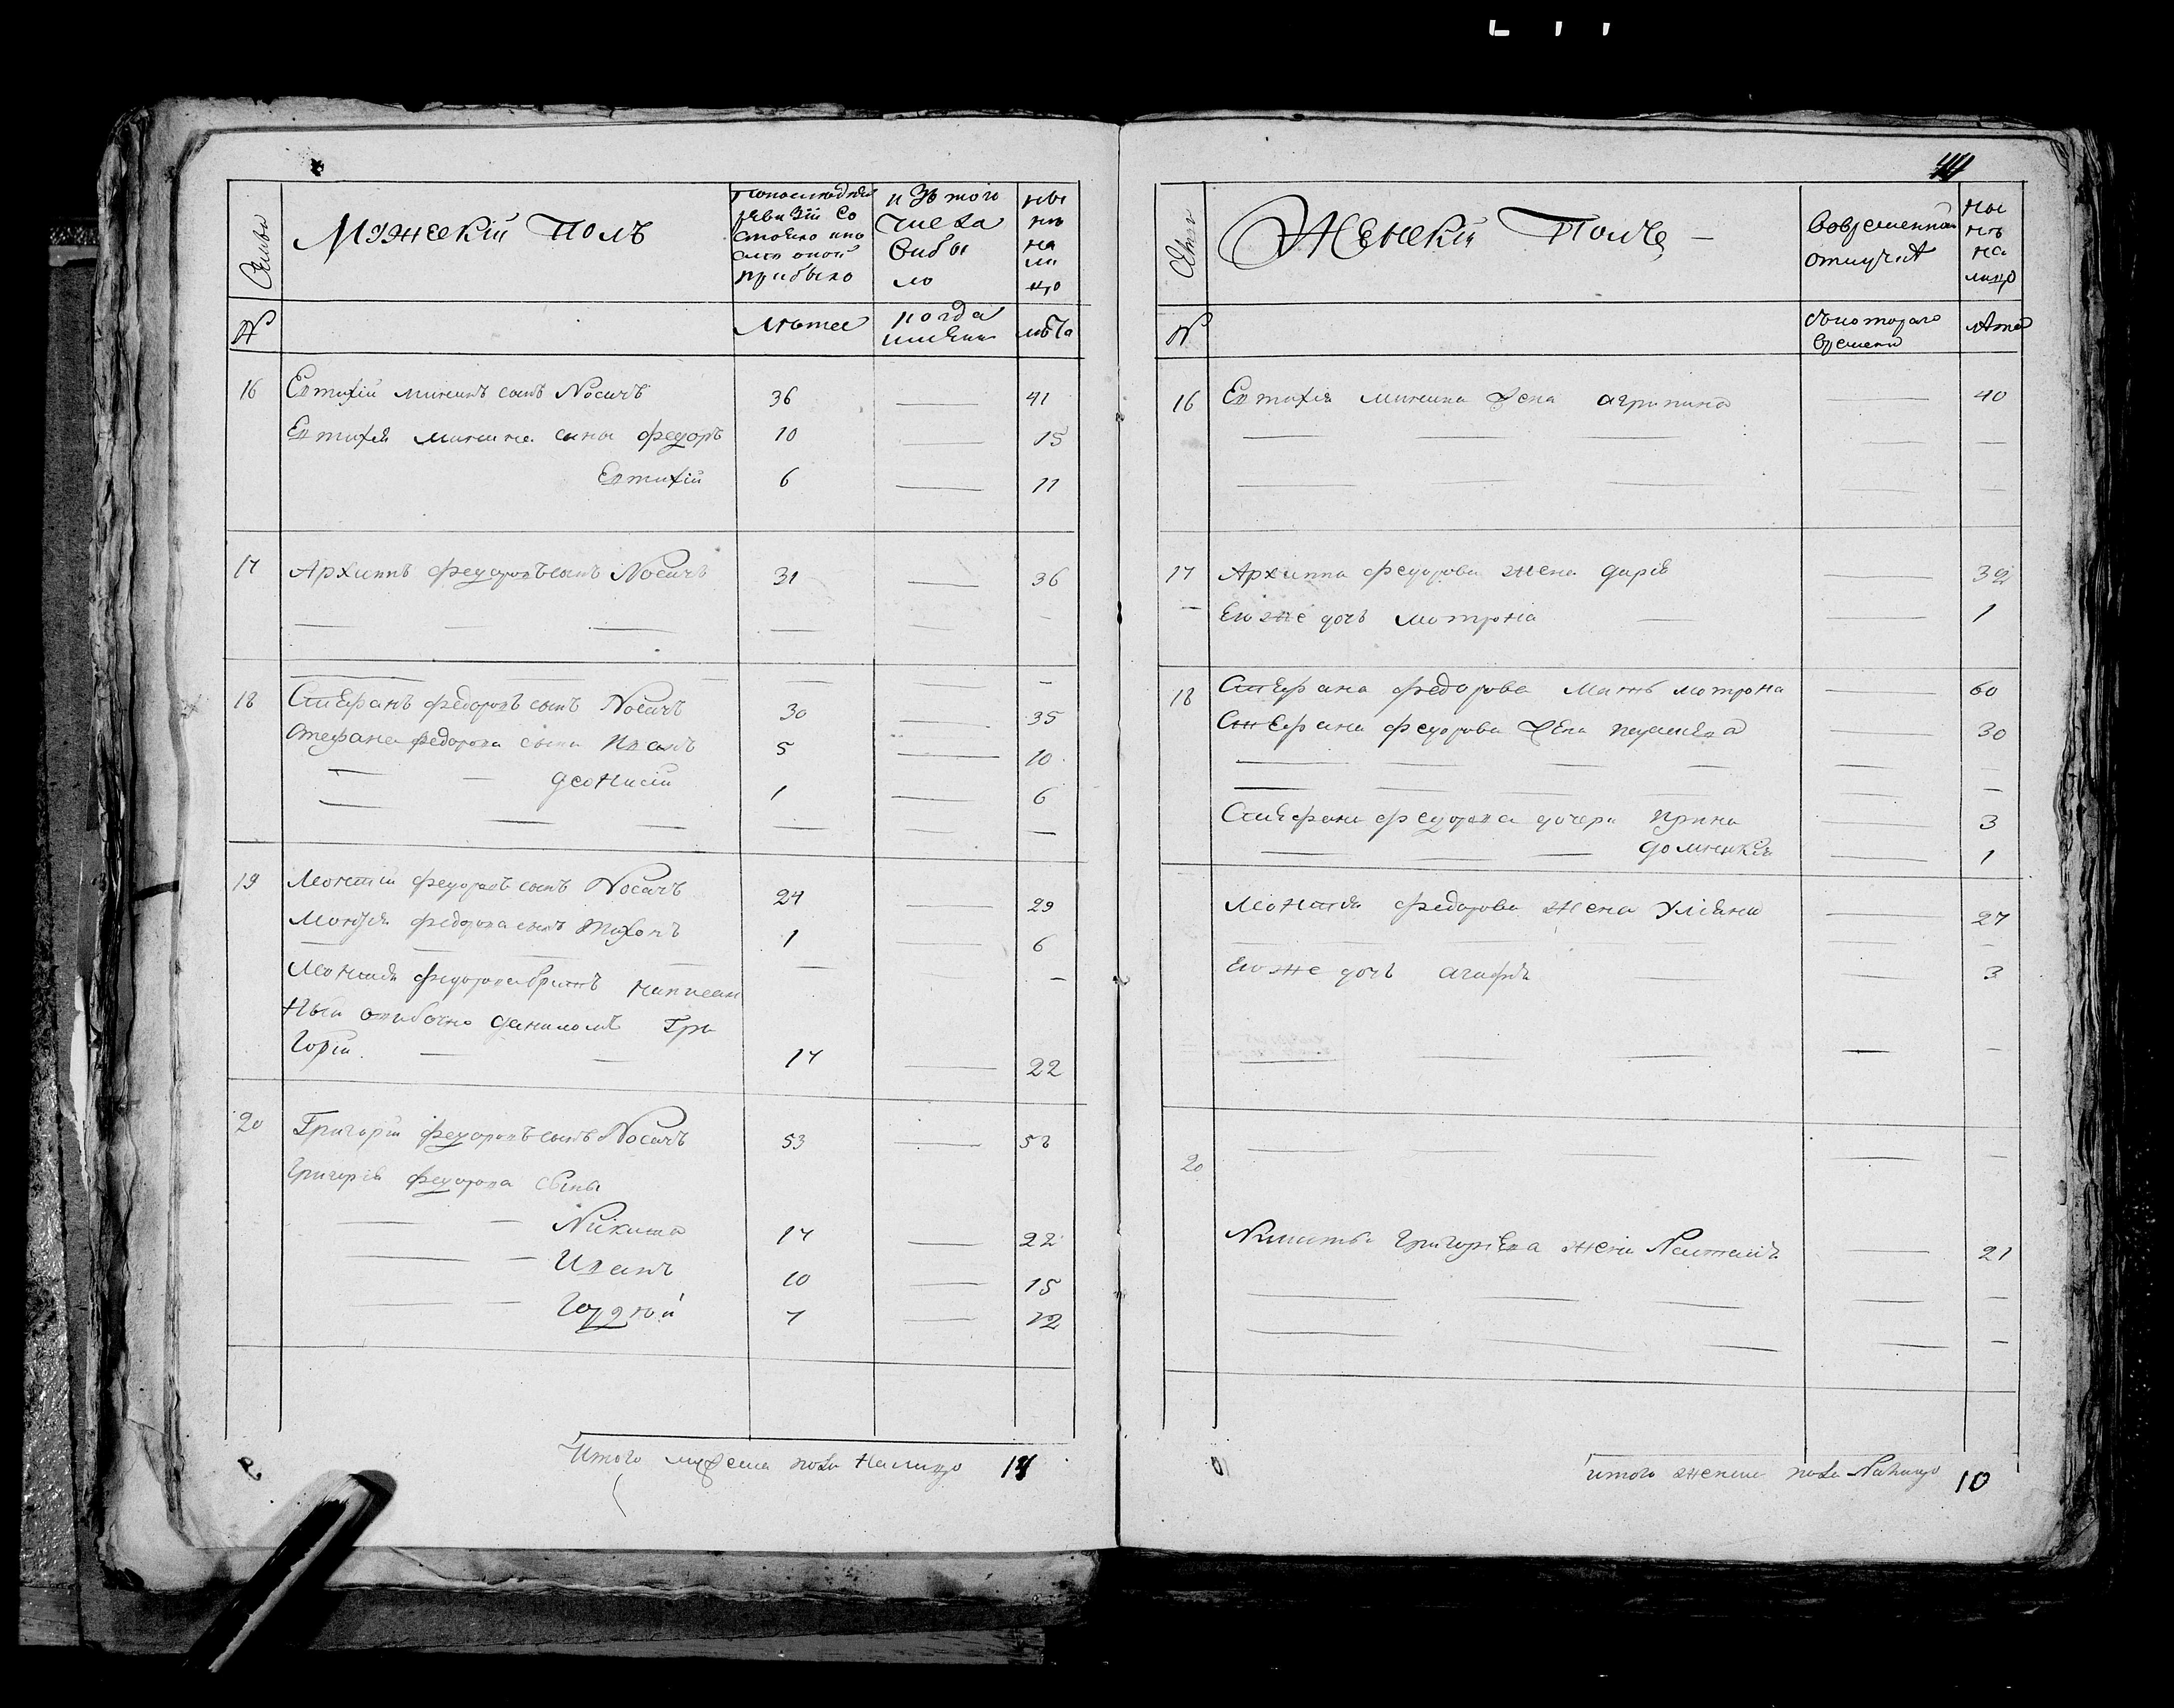 Семьи
Мужескій Полъ
По последней ревизіи состояло и после оной прибыло
изъ того числа выбыло
ныне на лицо
№
Летъ
когда имянно
лета
16 Евтихій мининъ сынъ Nосачъ 36 — 41
Евтихія минина сыны федоръ 10 — 15
Евтихій 6 — 11
17 Архиппъ федоровъ сынъ Nосачъ 31 — 36
18 Стефанъ федоровъ сынъ Nосачъ 30 — 35
Стефана федорова сыны Иванъ 5 — 10
деонисій 1 — 6
19 Леонтій федоровъ сынъ Nосачъ 24 — 29
Леонтія федорова сынъ тихонъ 1 — 6
Леонтія федорова братъ написан
ный ошибочно даниломъ Гри
горій 17 — 22
20 Григорій федоровъ сынъ Nосачъ 53 — 58
Григорія федорова сыны
Nикита 17 — 22
Иванъ 10 — 15
Гордѣй 7 — 12
Итого мужеска пола налицо 14
Женскій Полъ —
Во временной отлучкѣ
ныне на лицо
№
съ котораго времени
лета
16 Евтихія минина жена агрипина — 40
17 Архиппа федорова жена дарія — 32
Его же дочь мотрона — 1
18 Стефана федорова мать мотрона — 60
Стефана федорова жена — 30
Стефана федорова дочери ирина — 3
домникія — 1
Леонтія федорова жена Уліана — 27
Его же дочь агафія — 3
20
Nикиты Григорьева жена Nасталія — 21
итого женска пола Nалицо 10